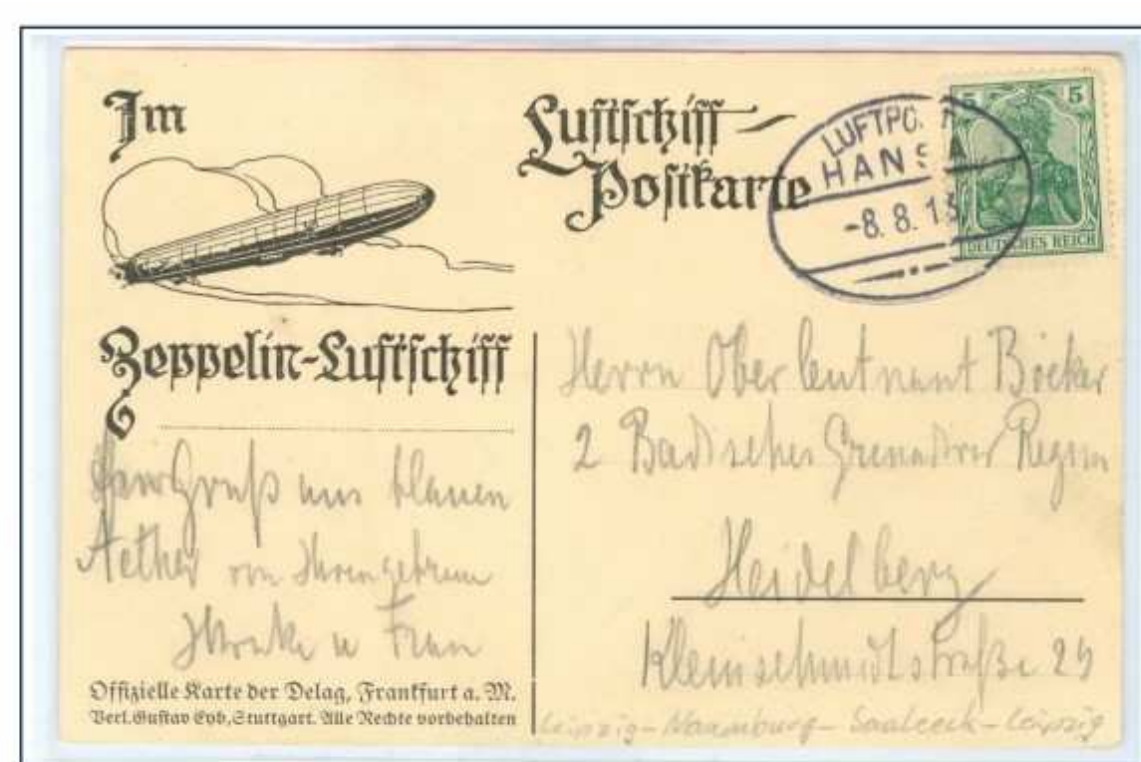 Im
Luftschiff-
Postkarte
LUFTPOST
HANSA
-8. 8. 13
5 5
DEUTSCHES REICH
Zeppelin-Luftschiff
Gruß aus blauen
Aether von
u Frau
Offizielle Karte der Delag, Frankfurt a. M.
Verl. Gustav Eyb, Stuttgart. Alle Rechte vorbehalten
Herrn Oberleutnant Böcker
2 Badisches Grenadier Regim
Heidelberg
Kleinschmidtstraße 25
Leipzig-Naumburg-Saaleck-Leipzig